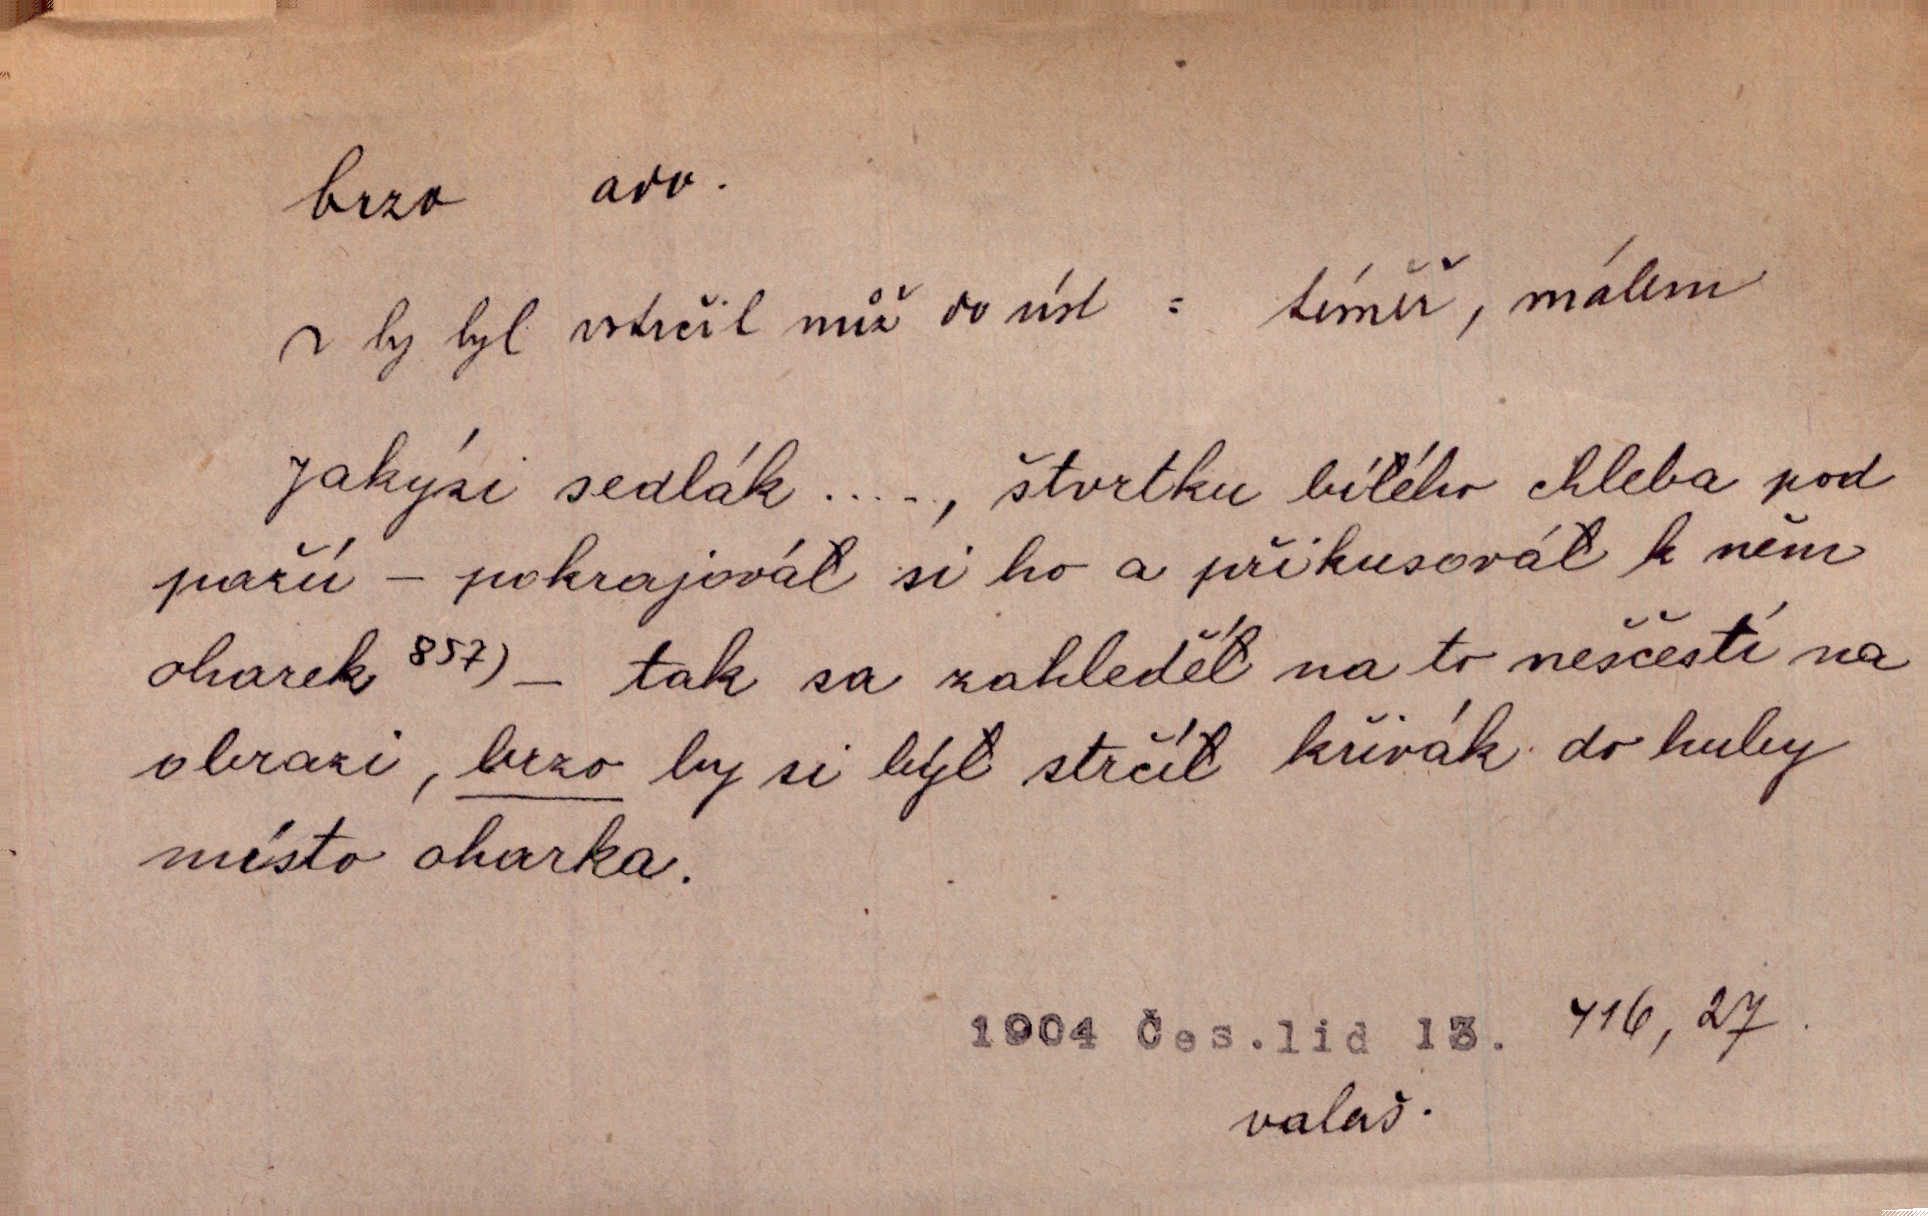 brzo adv.
~ by byl vstrčil nůž do úst = téměř, málem
Jakýsi sedlák ....., štvrtku bíłého chleba pod
pažú – pokrajováł si ho a přikusováł k něm
oharek 857) – tak sa zahleděł na to neščestí na
obrazi, brzo by si býł strčíł křivák do huby
místo oharka.
1904 Čes.lid 13. 416, 27.
valaš.